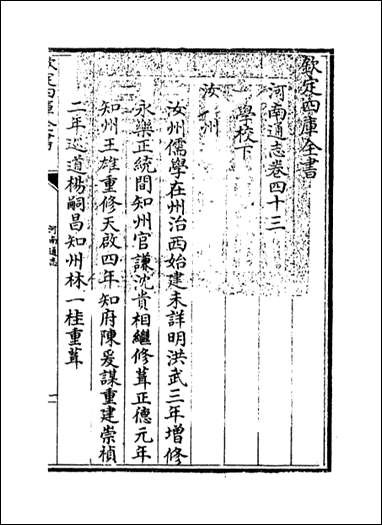 欽定四庫全書
河南通志卷四十三
學校下
汝州
汝州儒學在州治西始建未詳明洪武三年增修
永樂正統間知州官謙沈貴相繼修葺正德元年
知州王雄重修天啟四年知府陳爰謀重建崇禎
二年巡道楊嗣昌知州林一桂重葺
欽定四庫全書
河南通志
一